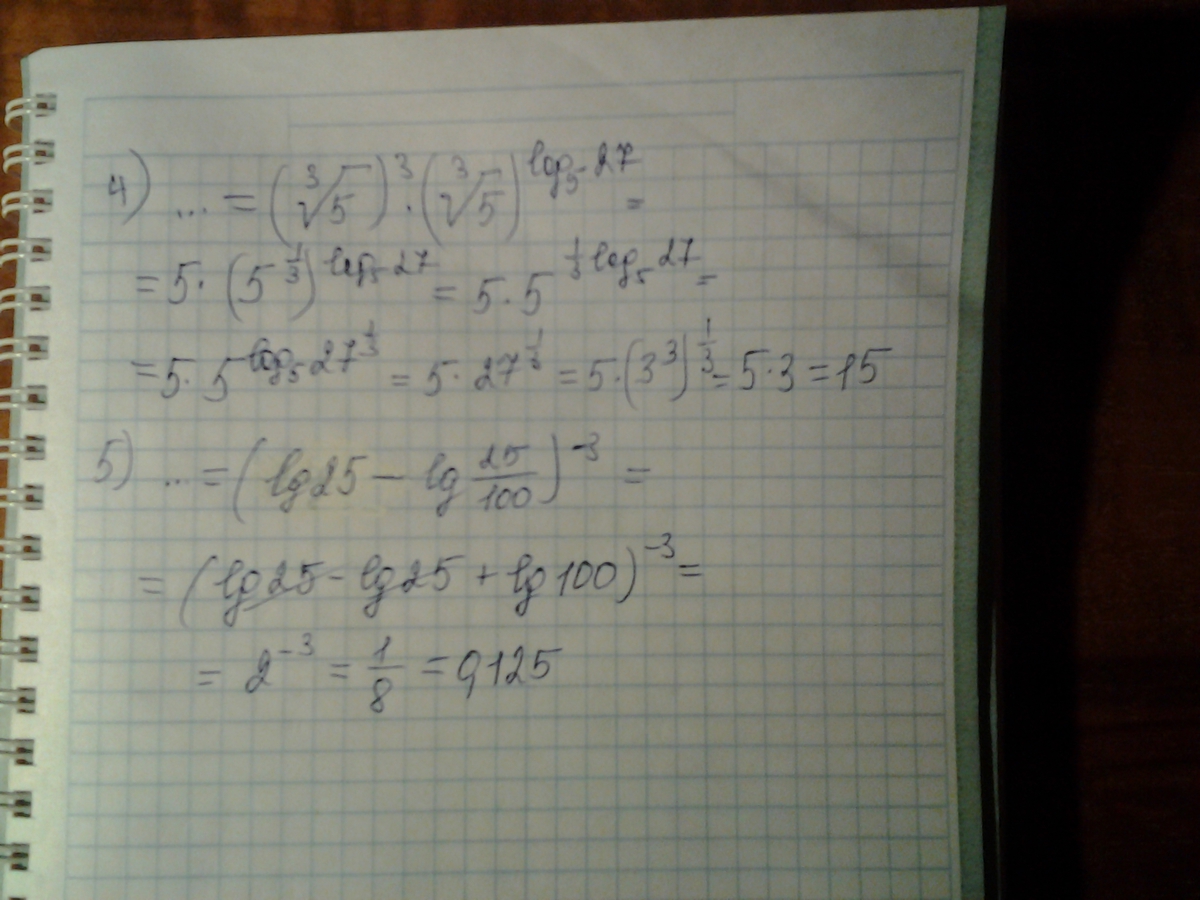 4) ... = (∛5)³ · (∛5)^(log₅27) =
= 5 · (5^(1/3))^(log₅27) = 5 · 5^(1/3 log₅27) =
= 5 · 5^(log₅27^(1/3)) = 5 · 27^(1/3) = 5 · (3³)^(1/3) = 5 · 3 = 15
5) ... = (lg25 − lg 25/100)^(-3) =
= (lg25 - lg25 + lg100)^(-3) =
= 2^(-3) = 1/8 = 0,125